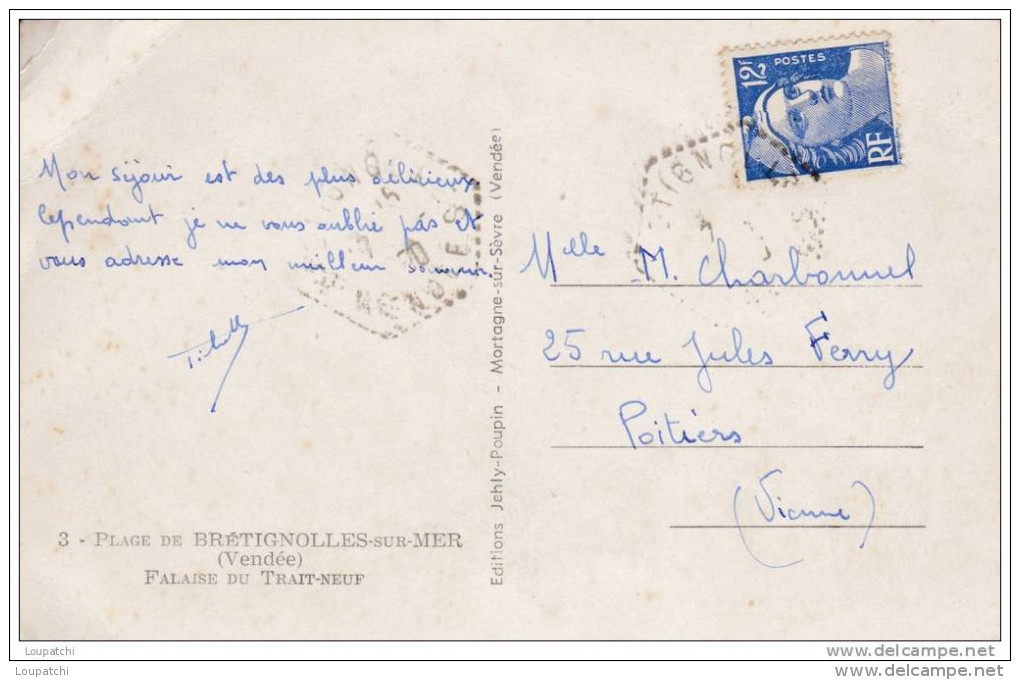 Mon séjour est des plus délicieux
Cependant je ne vous oublie pas et
vous adresse mon meilleur souvenir.
3 - PLAGE DE BRÉTIGNOLLES-SUR-MER
(Vendée)
FALAISE DU TRAIT-NEUF
Editions Jehly-Poupin - Mortagne-sur-Sèvre (Vendée)
12F POSTES
RF
Melle M. Charbonnel
25 rue Jules Ferry
Poitiers
(Vienne)
Loupatchi
Loupatchi
www.delcampe.net
www.delcampe.net